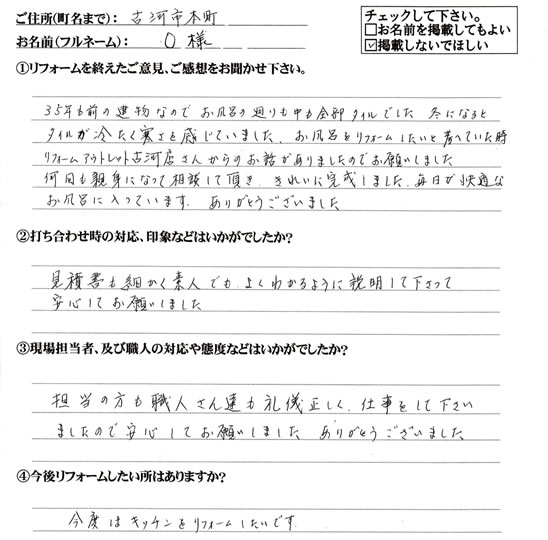 ご住所(町名まで): 古河市本町
お名前(フルネーム): O 様
チェックして下さい。
□お名前を掲載してもよい
☑掲載しないでほしい
①リフォームを終えたご意見、ご感想をお聞かせ下さい。
35年も前の建物なのでお風呂の廻りも中も全部タイルでした 冬になると
タイルが冷たく寒さを感じていました。お風呂をリフォームしたいと考えていた時
リフォームアウトレット古河店さんからのお話がありましたのでお願いしました
何回も親身になって相談して頂き、きれいに完成しました、毎日が快適な
お風呂に入っています。ありがとうございました
②打ち合わせ時の対応、印象などはいかがでしたか?
見積書も細かく素人でもよくわかるように説明して下さって
安心してお願いしました
③現場担当者、及び職人の対応や態度などはいかがでしたか?
担当の方も職人さん達も礼儀正しく、仕事をして下さい
ましたので安心してお願いしました ありがとうございました
④今後リフォームしたい所はありますか?
今度はキッチンをリフォームしたいです。